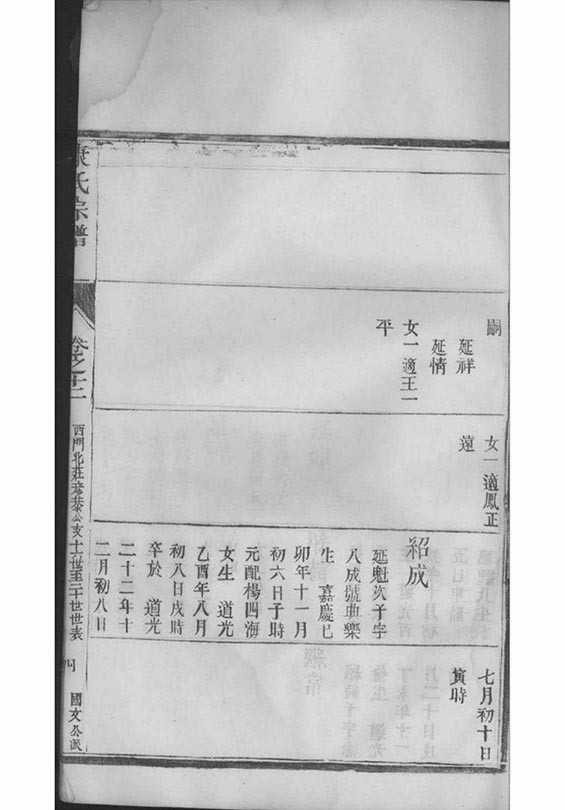 嗣
延祥
延情
女一適王一
平
女一適鳳正
遠
紹成
延魁次子字
八成號典樂
生 嘉慶己
卯年十一月
初六日子時
元配楊四海
女生 道光
乙酉年八月
初八日戌時
卒於 道光
二十二年十
二月初八日
七月初十日
寅時
氏宗譜
卷之十二
西門北莊公支十六世至二十世世表
四
國文公派